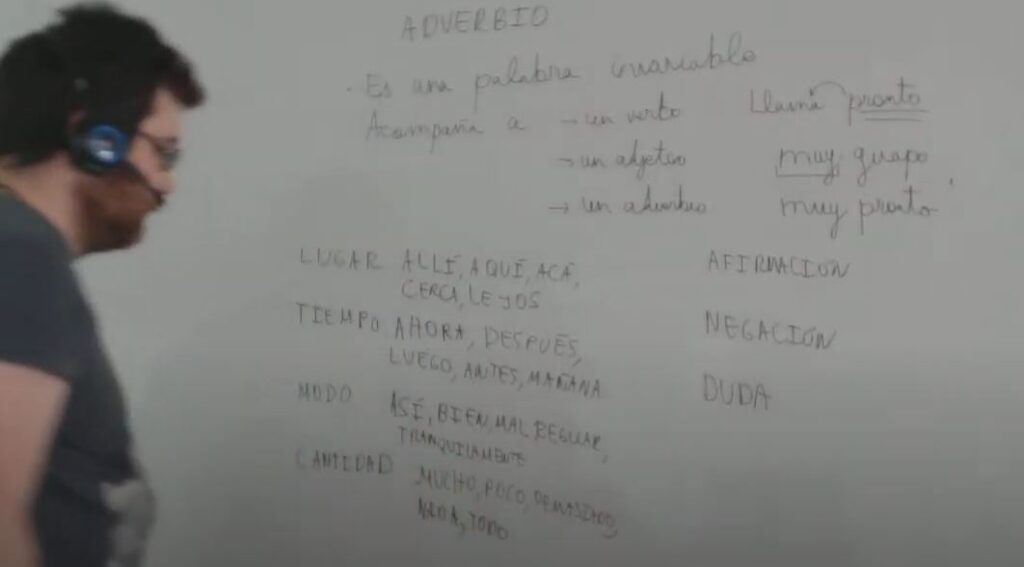 ADVERBIO
· Es una palabra invariable
Acompaña a → un verbo Llama pronto
→ un adjetivo muy guapo
→ un adverbio muy pronto
LUGAR ALLÍ, AQUÍ, ACÁ,
CERCA, LEJOS
AFIRMACIÓN
TIEMPO AHORA, DESPUÉS,
LUEGO, ANTES, MAÑANA
NEGACIÓN
MODO ASÍ, BIEN, MAL, REGULAR,
TRANQUILAMENTE
DUDA
CANTIDAD MUCHO, POCO, DEMASIADO,
NADA, TODO